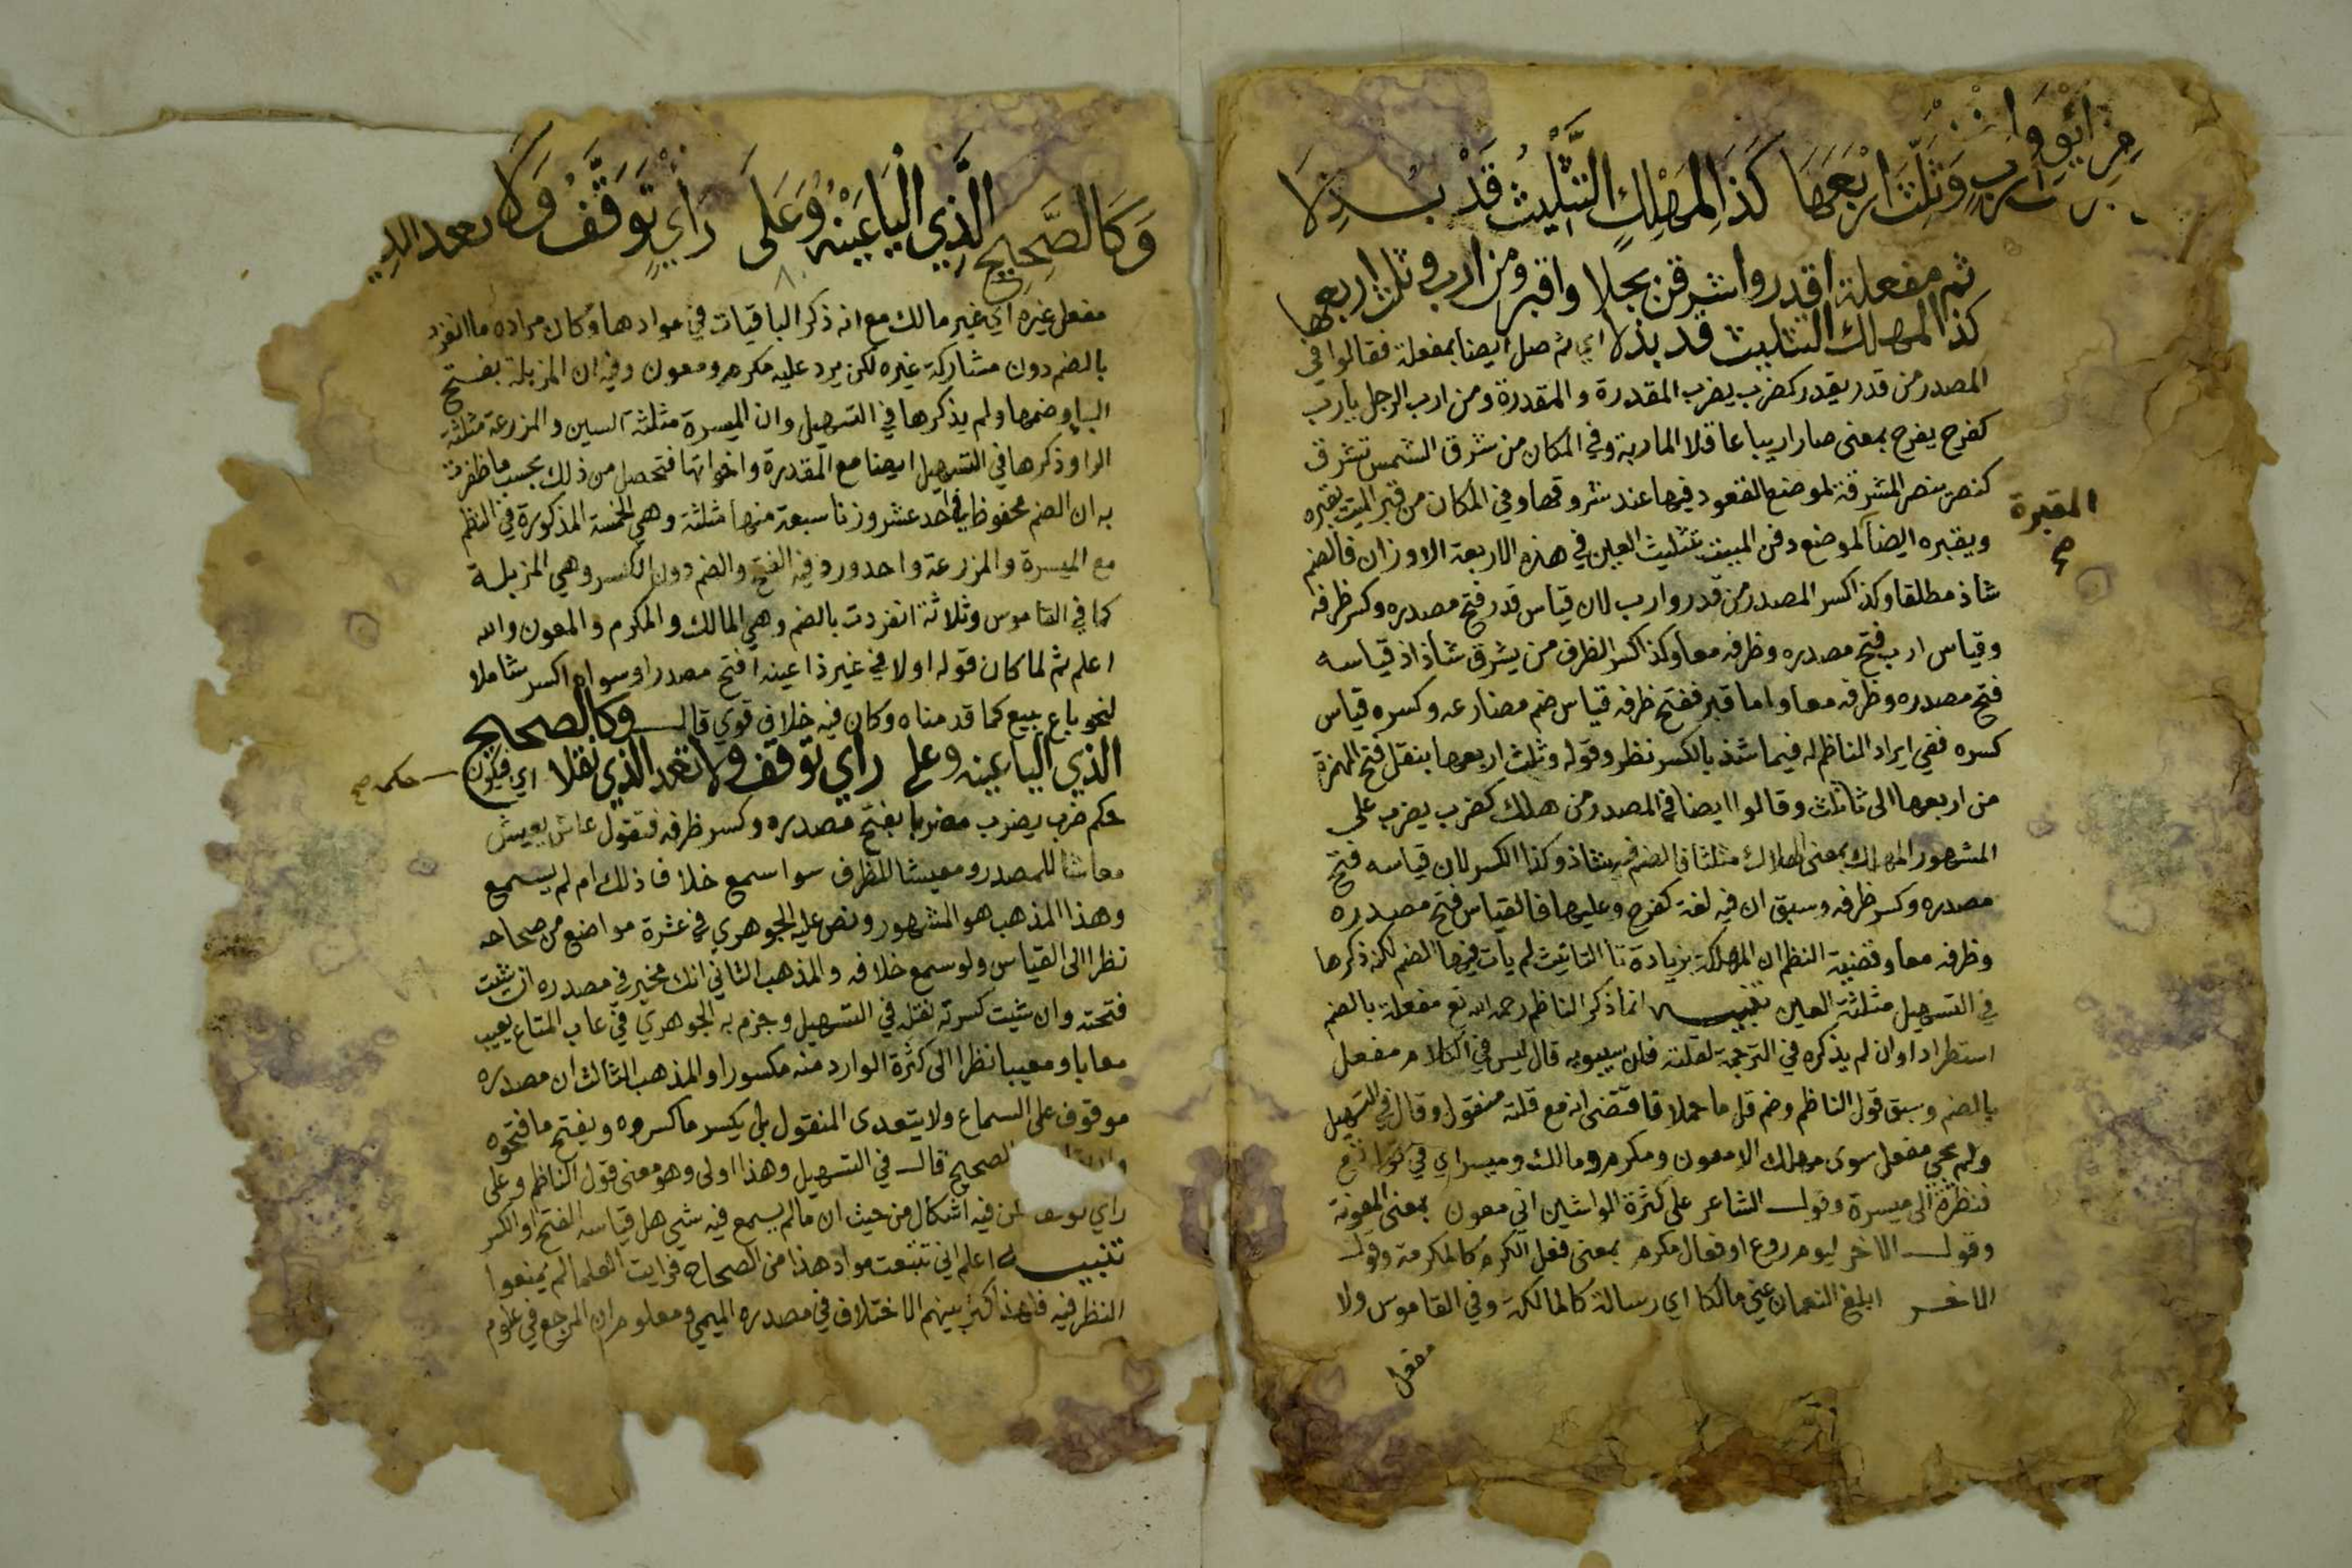 من ائو وا
ارب وَثَلِّثَ ارْبَعَهَا كَذَا لِمَهْلِكٍ التَّثْلِيثُ قَدْ بُذِلَا
ثم مفعلة اقدر واشرقن بجلا واقبر ومن ارب وثلث اربعها
كذا لمهلك التثليث قد بذلا اي ثم صل ايضا بمفعلة فقالوا في
المصدر من قدر يقدر كضرب يضرب المقدرة والمقدرة ومن ارب الرجل يارب
كفرح يفرح بمعنى صار اريبا عاقلا الماربة وفي المكان من شرق الشمس تشرق
كنصر ينصر المشرقة لموضع القعود فيها عند شروقها وفي المكان من قبر الميت يقبره
المقبرة صح
ويقبره ايضا لموضع دفن الميت بتثليث العين في هذه الاربعة الاوزان فالضم
شاذ مطلقا وكذا كسر المصدر من قدر وارب لان قياس قدر فتح مصدره وكسر ظرفه
وقياس ارب فتح مصدره وظرفه معا وكذا كسر الظرف من يشرق شاذ اذ قياسه
فتح مصدره وظرفه معا واما قبر ففتح ظرفه قياس ضم مضارعه وكسره قياس
كسره ففي ايراد الناظم له فيما شذ بالكسر نظر وقوله وثلث اربعها بنقل فتح الهمزة
من اربعها الى ثا ثلث وقالوا ايضا في المصدر من هلك كضرب يضرب على
المشهور المهلك بمعنى الهلاك مثلثا فالضم فيه شاذ وكذا الكسر لان قياسه فتح
مصدره وكسر ظرفه وسبق ان فيه لغة كفرح وعليها فالقياس فتح مصدره
وظرفه معا وقضية النظم ان المهلكة بزيادة تا التانيث لم يات فيها الضم لكن ذكرها
في التسهيل مثلثة العين تنبيه انما ذكر الناظم رحمه الله تع مفعلة بالضم
استطرادا وان لم يذكره في الترجمة لقلته فلان سيبويه قال ليس في الكلام مفعل
بالضم وسبق قول الناظم وضم قل ما حملا فاقتضى انه مع قلته منقول وقال في التسهيل
ولم يجي مفعل سوى مهلك الا معون ومكرم ومالك وميسر اي في قوله تع
فنظرة الى ميسرة وقول الشاعر على كثرة الواشين اني معون بمعنى المعونة
وقول الاخر ليوم روع او فعال مكرم بمعنى فعل الكرم كالمكرمة وقول
الاخر ابلغ النعمان عني مالكا اي رسالة كالمالكة وفي القاموس ولا
مفعل
وَكَالصَّحِيحِ الَّذِي الْيَا عَيْنُهُ وَعَلَى رَأْيٍ تَوَقَّفْ وَلَا تعد الذي
مفعل غيره اي غير مالك مع انه ذكر الباقيات في موادها وكان مراده ما انفرد
بالضم دون مشاركة غيره لكن يرد عليه مكرم ومعون وفيه ان المزبلة بفتح
البا وضمها ولم يذكرها في التسهيل وان الميسرة مثلثة السين والمزرعة مثلثة
الرا وذكرها في التسهيل ايضا مع المقدرة واخواتها فتحصل من ذلك بحسب ما ظفرت
به ان الضم محفوظ في احد عشر وزنا سبعة منها مثلثة وهي الخمسة المذكورة في النظم
مع الميسرة والمزرعة واحد ورد فيه الفتح والضم دون الكسر وهي المزبلة
كما في القاموس وثلاثة انفردت بالضم وهي المالك والمكرم والمعون والله
اعلم ثم لما كان قوله اولا في غير ذا عينه افتح مصدرا وسواه اكسر شاملا
لنحو باع يبيع كما قدمناه وكان فيه خلاف قوي قال وكالصحيح
الذي اليا عينه وعلى راي توقف ولا تعد الذي نقلا اي فيكون
حكمه صح
حكم ضرب يضرب مضربا بفتح مصدره وكسر ظرفه فتقول عاش يعيش
معاشا للمصدر ومعيشا للظرف سوا سمع خلاف ذلك ام لم يسمع
وهذا المذهب هو المشهور ونص عليه الجوهري في عشرة مواضع من صحاحه
نظرا الى القياس ولو سمع خلافه والمذهب الثاني انك مخير في مصدره ان شيت
فتحته وان شيت كسرته نقله في التسهيل وجزم به الجوهري في عاب المتاع يعيب
معابا ومعيبا نظرا الى كثرة الوارد منه مكسورا والمذهب الثالث ان مصدره
موقوف على السماع ولا يتعدى المنقول بل يكسر ما كسروه ويفتح ما فتحوه
الصحيح قال في التسهيل وهذا اولى وهو معنى قول الناظم وعلى
راي توقف لكن فيه اشكال من حيث ان ما لم يسمع فيه شي هل قياسه الفتح او الكسر
تنبيه اعلم اني تتبعت مواد هذا من الصحاح فرايت العلما لم يمنعوا
النظر فيه فلهذا كثر بينهم الاختلاف في مصدره الميمي ومعلوم ان المرجع في علوم